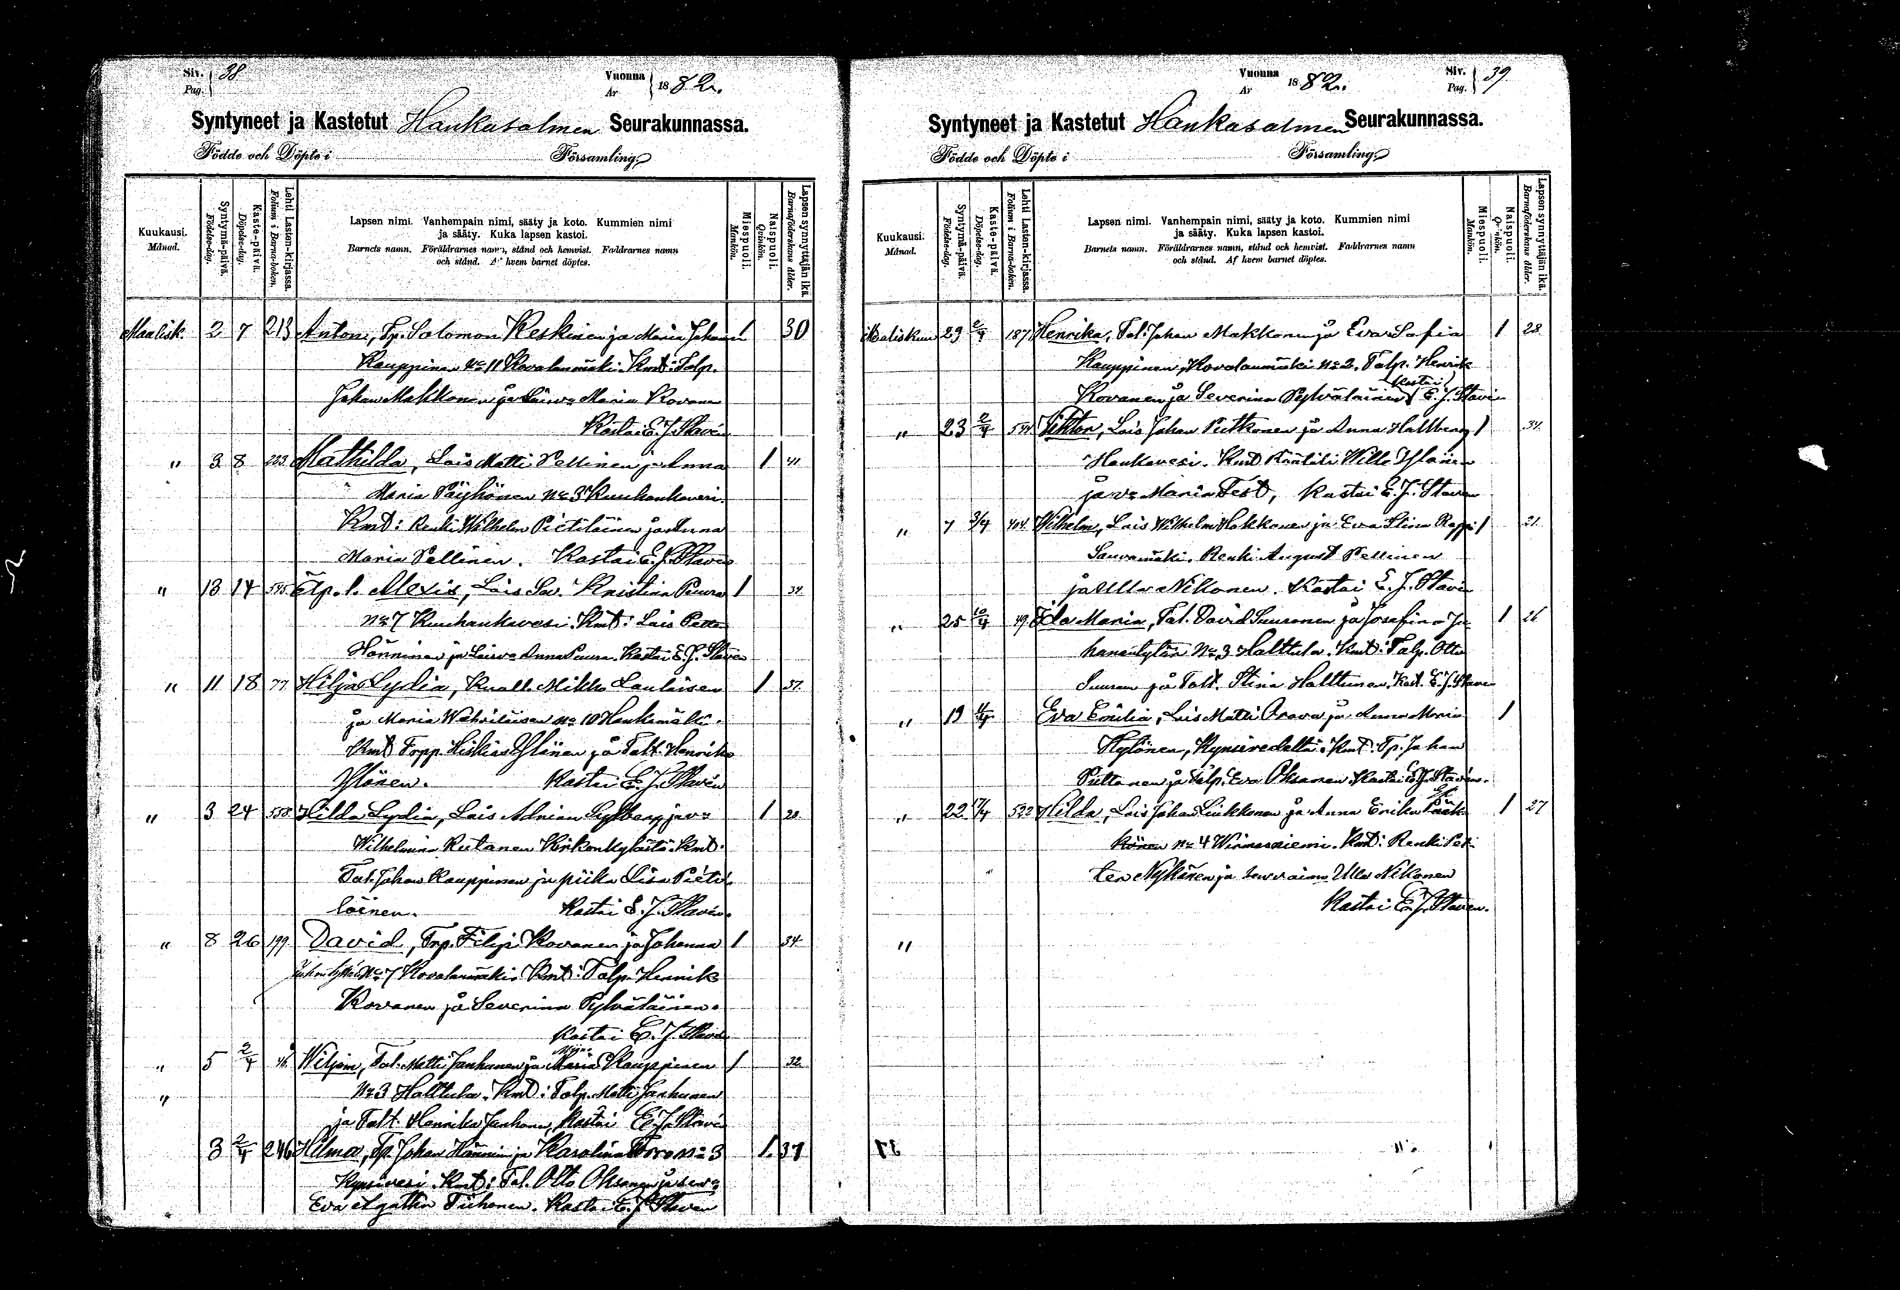 Siv. Pag. 38
Vuonna År 1882.
Syntyneet ja Kastetut Hankasalmen Seurakunnassa.
Födde och Döpte i Församling
Kuukausi. Månad.
Syntymä-päivä. Födelse-dag.
Kaste-päivä. Döpelse-dag.
Lehti Lasten-kirjassa. Folium i Barna-boken.
Lapsen nimi. Vanhempain nimi, sääty ja koto. Kummien nimi
ja sääty. Kuka lapsen kastoi.
Barnets namn. Föräldrarnes namn, stånd och hemvist. Faddrarnes namn
och stånd. Af hvem barnet döptes.
Miespuoli. Mankön.
Naispuoli. Qvinkön.
Lapsen synnyttäjän ikä. Barnaföderskans ålder.
Maalisk. 2 7 213 Anton, Tp. Salomon Keskinen ja Maria Johanna 1 30
Kauppinen No 11 Kovalanmäki. Kmt: Talp.
Johan Makkonen ja Maria Kovanen
Kastoi E. J. Stavén
" 3 8 223 Mathilda, Lois Matti Pellinen ja Anna 1 41
Maria Päyhönen No 3 Kuuhankavesi.
Kmt: Renki Wilhelm Pietiläinen ja Anna
Maria Pellinen. Kastoi E. J. Stavén
" 13 14 595 Alexis, Lois Kristina Puura 1 34
No 7 Kuuhankavesi. Kmt: Lois Petter
Hänninen ja Anna Puura. Kastoi E. J. Stavén
" 11 18 77 Hilja Lydia, Mikko Laulaisen 1 37
ja Maria No 10 Hankamäki.
Kmt Ylönen ja Talt. Henrika
Ylönen. Kastoi E. J. Stavén
" 3 24 558 Hilda Lydia, Lois Adrian ja v: 1 28
Wilhelmina Rutanen Kirkonkylästä. Kmt.
Tal. Johan Kauppinen ja piika Lisa Pieti-
läinen. Kastoi E. J. Stavén.
" 8 26 199 David, Filip Kovanen ja Johanna 1 34
No 7 Kovalanmäki. Kmt: Talp. Henrik
Kovanen ja Severina Pylväläinen.
Kastoi E. J. Stavén
" 5 2/4 Wiljam, Tal. Matti Janhunen ja Maria Kauppinen 1 32
" No 3 Halttula. Kmt: Talp. Matti Janhunen
ja Talt. Henrika Janhunen, Kastoi E. J. Stavén
3 2/4 246 Hilma, Tp. Johan Hänninen ja Karolina No 3 1 37
Kynsivesi. Kmt: Tal. Otto Oksanen ja
Eva Agatha Tiihonen. Kastoi E. J. Stavén
Vuonna År 1882.
Siv. Pag. 39
Syntyneet ja Kastetut Hankasalmen Seurakunnassa.
Födde och Döpte i Församling
Kuukausi. Månad.
Syntymä-päivä. Födelse-dag.
Kaste-päivä. Döpelse-dag.
Lehti Lasten-kirjassa. Folium i Barna-boken.
Lapsen nimi. Vanhempain nimi, sääty ja koto. Kummien nimi
ja sääty. Kuka lapsen kastoi.
Barnets namn. Föräldrarnes namn, stånd och hemvist. Faddrarnes namn
och stånd. Af hvem barnet döptes.
Miespuoli. Mankön.
Naispuoli. Qvinkön.
Lapsen synnyttäjän ikä. Barnaföderskans ålder.
Maliskuu 29 2/4 187 Henrika, Tal. Johan Makkonen ja Eva Sofia 1 28
Kauppinen, Kovalanmäki No 2. Talp. Henrik
Kovanen ja Severina Pylväläinen (Kastoi) E. J. Stavén
" 23 2/4 Wiktor, Lois Johan Putkonen ja Anna Hallberg 1 34
Hankavesi. Kmt Wille Ylönen
ja v: Maria Kastoi E. J. Stavén
" 7 3/4 404 Wilhelm, Lois Wilhelm Hakkonen ja Eva Stina 1 21
Sauvamäki. Renki August Pellinen
ja Ulla Nikonen. Kastoi E. J. Stavén
" 25 10/4 49 Ida Maria, Tal. David Suuronen ja Josefina Jo- 1 26
hanintytär No 3 Halttula. Kmt: Talp. Otto
Suuronen ja Talt. Stina Halttunen. Kast. E. J. Stavén
" 19 Eva Emilia, Lois Matti Orava ja Anna Maria 1
Hylönen, Kynsivedeltä. Kmt: Tp. Johan
Puttonen ja Talp. Eva Oksanen. Kastoi E. J. Stavén.
" 22 17/4 522 Hilda, Lois Johan Liukkonen ja Anna Erika 1 27
No 4 Kmt: Renki Pet-
ter Nykänen ja Ulla Nikonen
Kastoi E. J. Stavén.
"